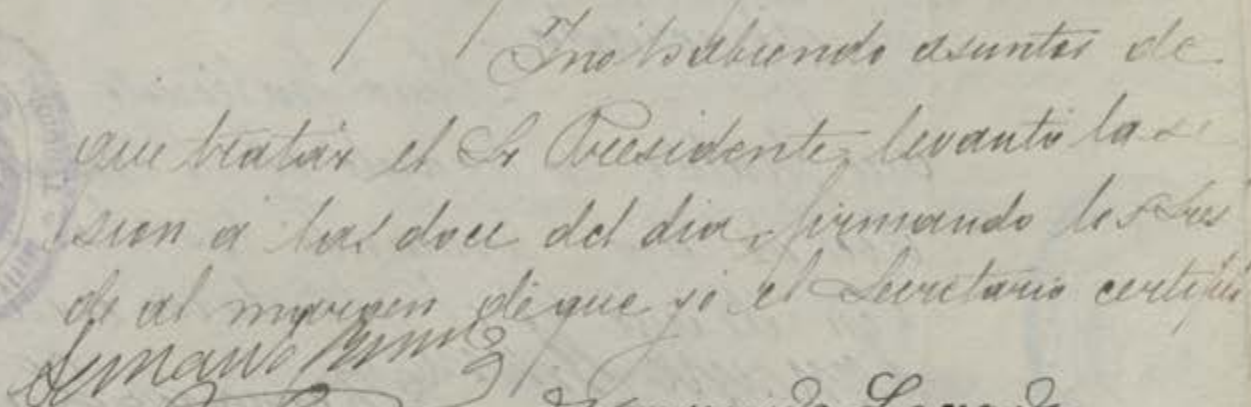 Y no habiendo asuntos de
que tratar el Sr Presidente, levanto la se
sion a las doce del dia, firmando los Sres
de al margen de que yo el Secretario certifico